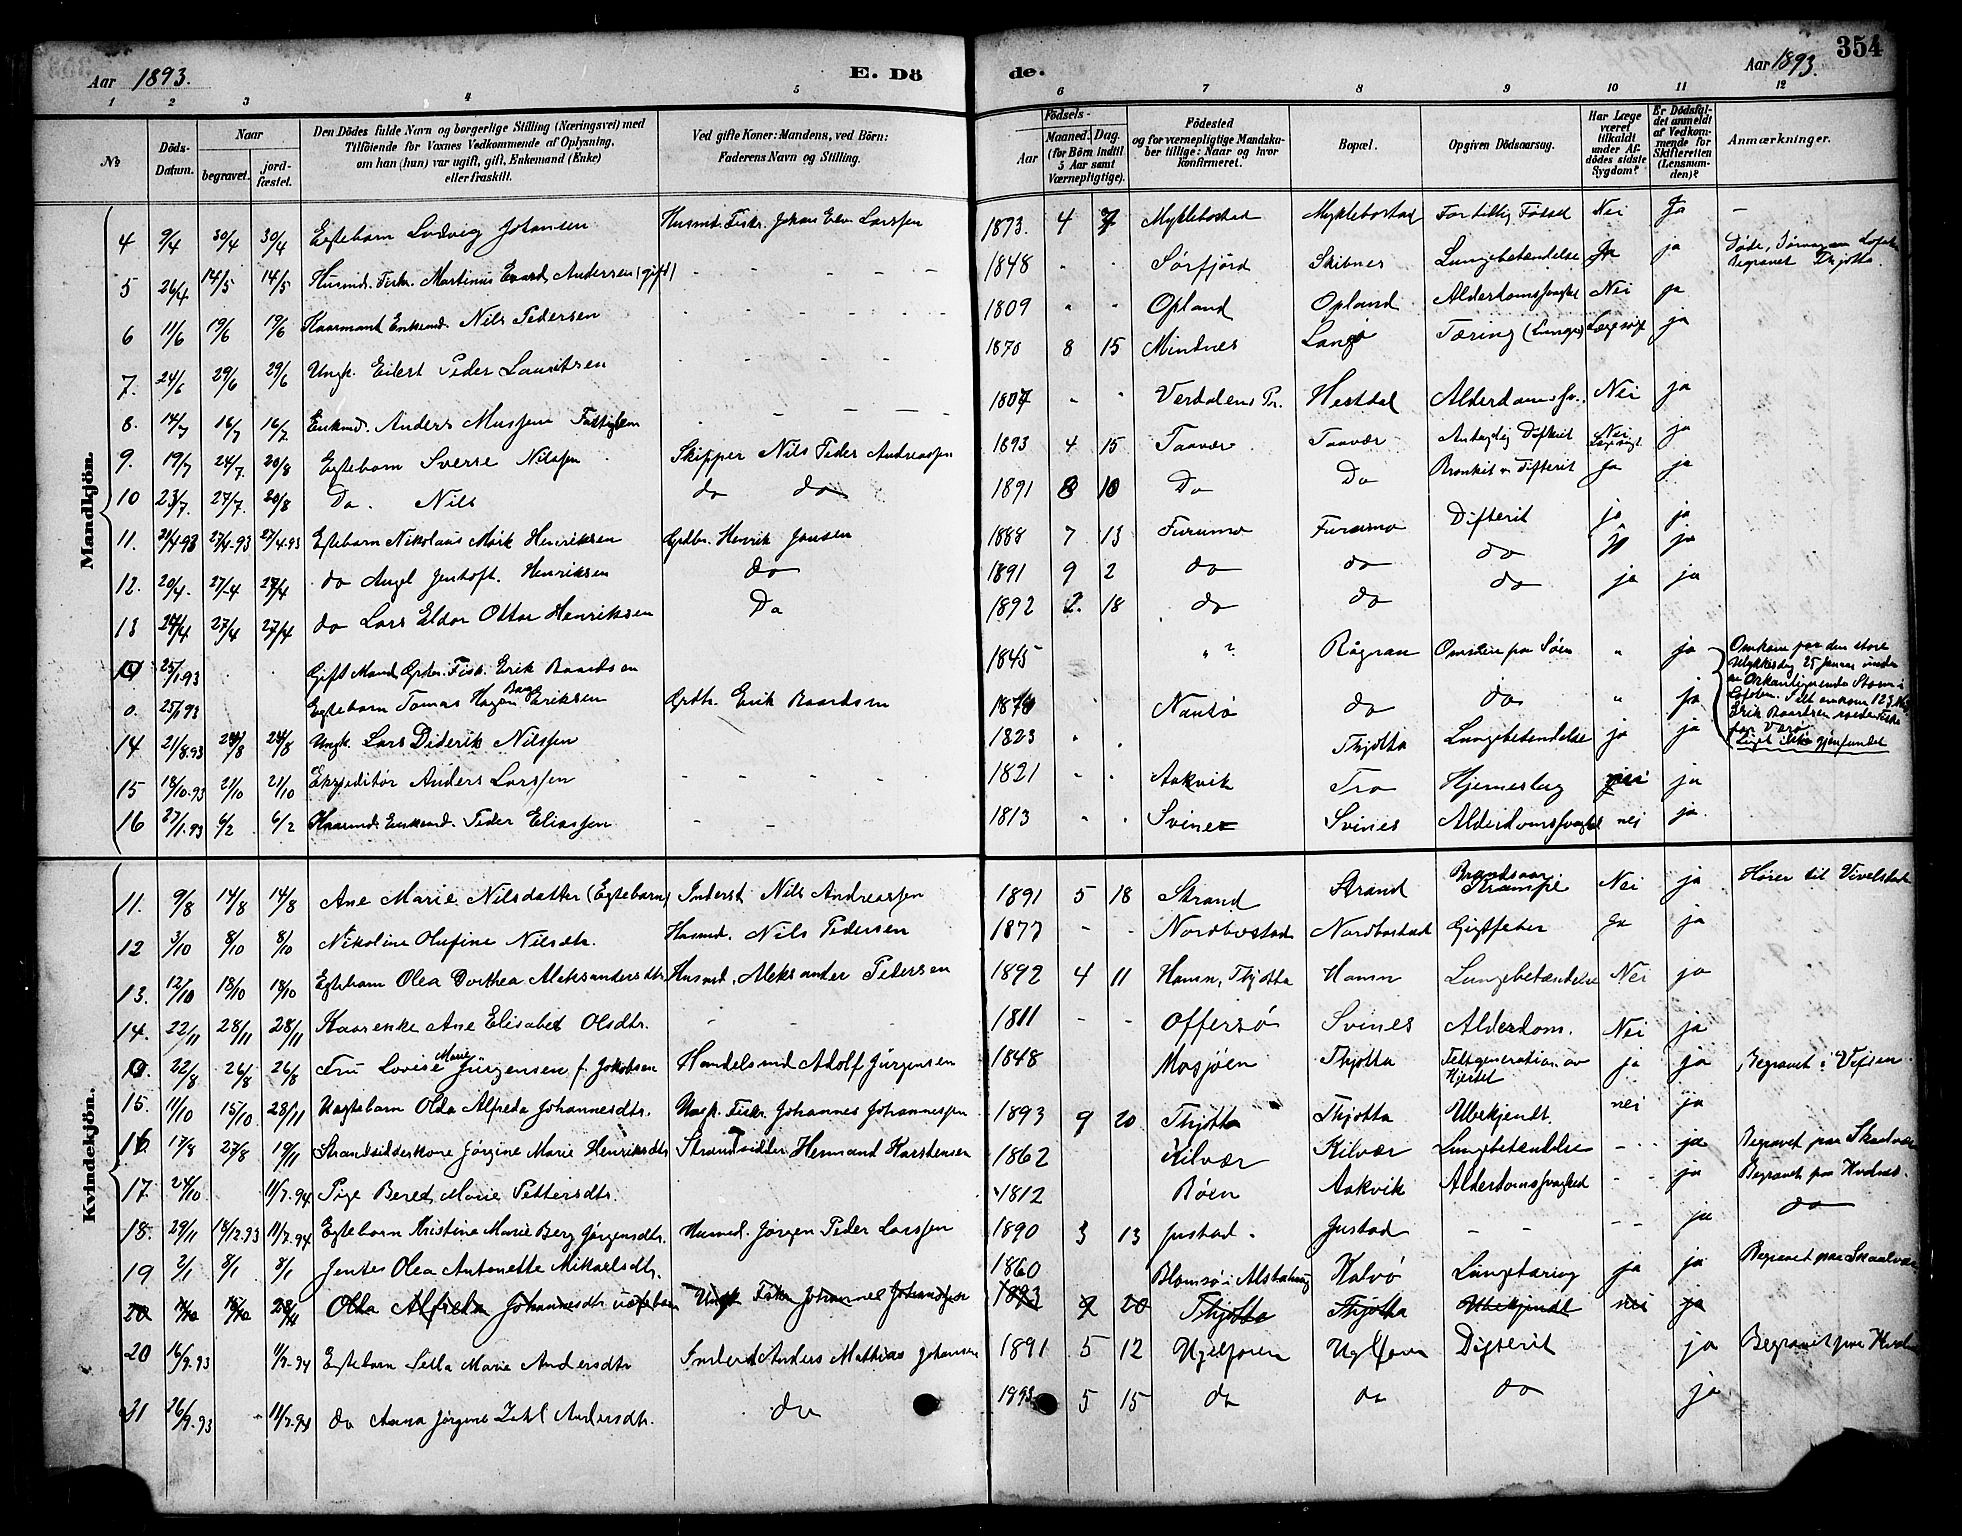 354
Aar 1893.
E. Dö
de.
Aar 1893.
1 2 3 4 5 6 7 8 9 10 11 12
№
Döds-Datum.
Naar
begravet.
jordfæstet.
Den Dödes fulde Navn og borgerlige Stilling (Næringsvei) med Tilföiende for Voxnes Vedkommende af Oplysning, om han (hun) var ugift, gift, Enkemand (Enke) eller fraskilt.
Ved gifte Koner: Mandens, ved Börn: Faderens Navn og Stilling.
Födsels-
Aar
Maaned. Dag. (for Börn indtil 5 Aar samt Værnepligtige).
Födested og for værnepligtige Mandskaber tillige: Naar og hvor konfirmeret.
Bopæl.
Opgiven Dödsaarsag.
Har Læge været tilkaldt under Afdödes sidste Sygdom?
Er Dödsfaldet anmeldt af Vedkommende for Skifteretten (Lensmanden)?
Anmærkninger.
Mandkjön.
4 9/4 30/4 30/4 Egtebarn Ludvig Johansen Husmd. Fiskr. Johan Larssen 1873. 4 7 Myklebostad Myklebostad For tidlig Födsel Nei Ja –
5 26/4 14/5 14/5 Husmd. Fiskr. Martinus Evard Andersen (gift) 1848 Sörfjord Skibnes Lungebetændelse Ja ja Begravet Thjötta.
6 11/6 19/6 19/6 Kaarmand Enkemd. Nils Pedersen 1809 Opland Opland Alderdomssvaghed Nei ja
7. 24/6 29/6 29/6 Ungk. Eilert Peder Lauritsen 1870 8 15 Mindnes Langö Tæring (Lunge) ja
8. 14/7 16/7 16/7 Enkemd. Anders 1807 Verdalen Hestdal Nei ja
9. 19/7 24/7. 20/8 Egtebarn Sverre Nilssen Skipper Nils Peder Andreassen 1893 4 15 Taavær Taavær Antagelig Difterit Nei ja
10 23/7. 27/7. 20/8 Do. Nils do do 1891 8 10 Do Do Bronkit Difterit Ja ja
11. 21/4-93 27/4-93 27/4-93 Egtebarn Nikolaus Henriksen Grdbr. Henrik Jensen 1888 7 13 Furumo Furumo Difterit ja ja
12. 20/4. 27/4 27/4 do Angel Jentoft Henriksen do 1891 9 2 do do do ja ja
13 24/4 27/4 27/4 do Lars Eldor Ottar Henriksen Do 1892 2. 18 do do do ja ja
0 25/1 93 Gift Mand Grdbr. Fisk. Erik Baardsen 1845 " ? Rögran Omkom paa Söen " ja Omkom paa den store Ulykkesdag 25 Januar under en Orkanlignende Storm i Lofoten. Erik Baardsen
0. 25/1 93 Egtebarn Tomas Hagen Eriksen Grdbr. Erik Baardsen 1874 do do " ja Liget ikke gjenfundet
14 21/8.93 24/8 24/8 Ungk. Lars Diderik Nilssen 1823 Thjötta Lungebetændelse ja ja
15 18/10.93 21/10 21/10 Expeditör Anders Larssen 1821 Aakvik Tro Hjerneslag nei ja
16 27/1.93 6/2 6/2 Kaarmd. Enkemd. Peder Eliassen 1813 Svines Svines Alderdomssvaghed nei ja.
Kvindekjön.
11. 9/8 14/8 14/8 Ane Marie Nilsdatter (Egtebarn) Inderst Nils Andreassen 1891 5 18 Strand Strand Brandsaar Krampe Nei ja Hörer til Vivelstad
12 3/10 8/10 8/10 Nikoline Olufine Nilsdtr. Husmd. Nils Pedersen 1877 - - Nordbostad Nordbostad Gigtfeber Ja ja
13. 12/10 18/10 18/10 Egtebarn Olea Dorthea Aleksandersdtr. Husmd. Aleksander Pedersen 1892 4 11 Hamn, Thjötta Hamn Lungebetændelse Nei ja
14. 22/11 28/11 28/11 Kaarenke Ane Elisabet Olsdtr. 1811 - - Offersö Svines Alderdom. Nei ja
0. 22/8 26/8 26/8 Fru Lovise Marie Jürgensen f. Jakobsen Handelsmd Adolf Jürgensen 1848 Mosjöen Thjötta Fettgeneration av Hjertet ja ja Begravet i Vefsen.
15. 11/10 15/10. 28/11 Uegtebarn Olda Alfreda Johannesdtr. Ungk. Fiskr. Johannes Johannessen 1893 9 20 Thjötta Thjötta Ubekjendt. nei ja
16 17/8 27/8 19/11 Strandsidderkone Jörgine Marie Henriksdtr Strandsidder Hermand Karstensen 1862 Kilvær Kilvær Lungebetændelse - - ja Begravet paa Skaalvær
17. 24/10 11/7.94 Pige Beret Marie Pettersdtr. 1812 Böen Aakvik Alderdomssvaghed - - ja Begravet paa Husvær
18. 29/11 18/12.93 11/7.94 Egtebarn Kristine Marie Berg Jörgensdtr. Husmd. Jörgen Peder Larssen 1890 3 13 Justad. Justad - - - - ja do
19 2/1 8/1 8/1 Jentes Olea Antonette Mikaelsdtr. 1860 Blomsö i Alstahaug Kalvö Lungetæring ja ja Begravet paa Skaalvær
20 11/10 15/10 28/11 Olda Alfreda Johannesdtr uegtebarn Ungk Fiskr Johannes Johannessen 1893 9 20 Thjötta Thjötta Ubekjendt nei ja
20 16/9.93 11/7-94 Egtebarn Sella Marie Andersdtr Inderst Anders Mathias Johansen 1891 5 12 Difterit ja Begravet paa
21 26/9.93 11/7.94 do Anna Jörgine Andersdtr. do 1893 5 15 do do do ja